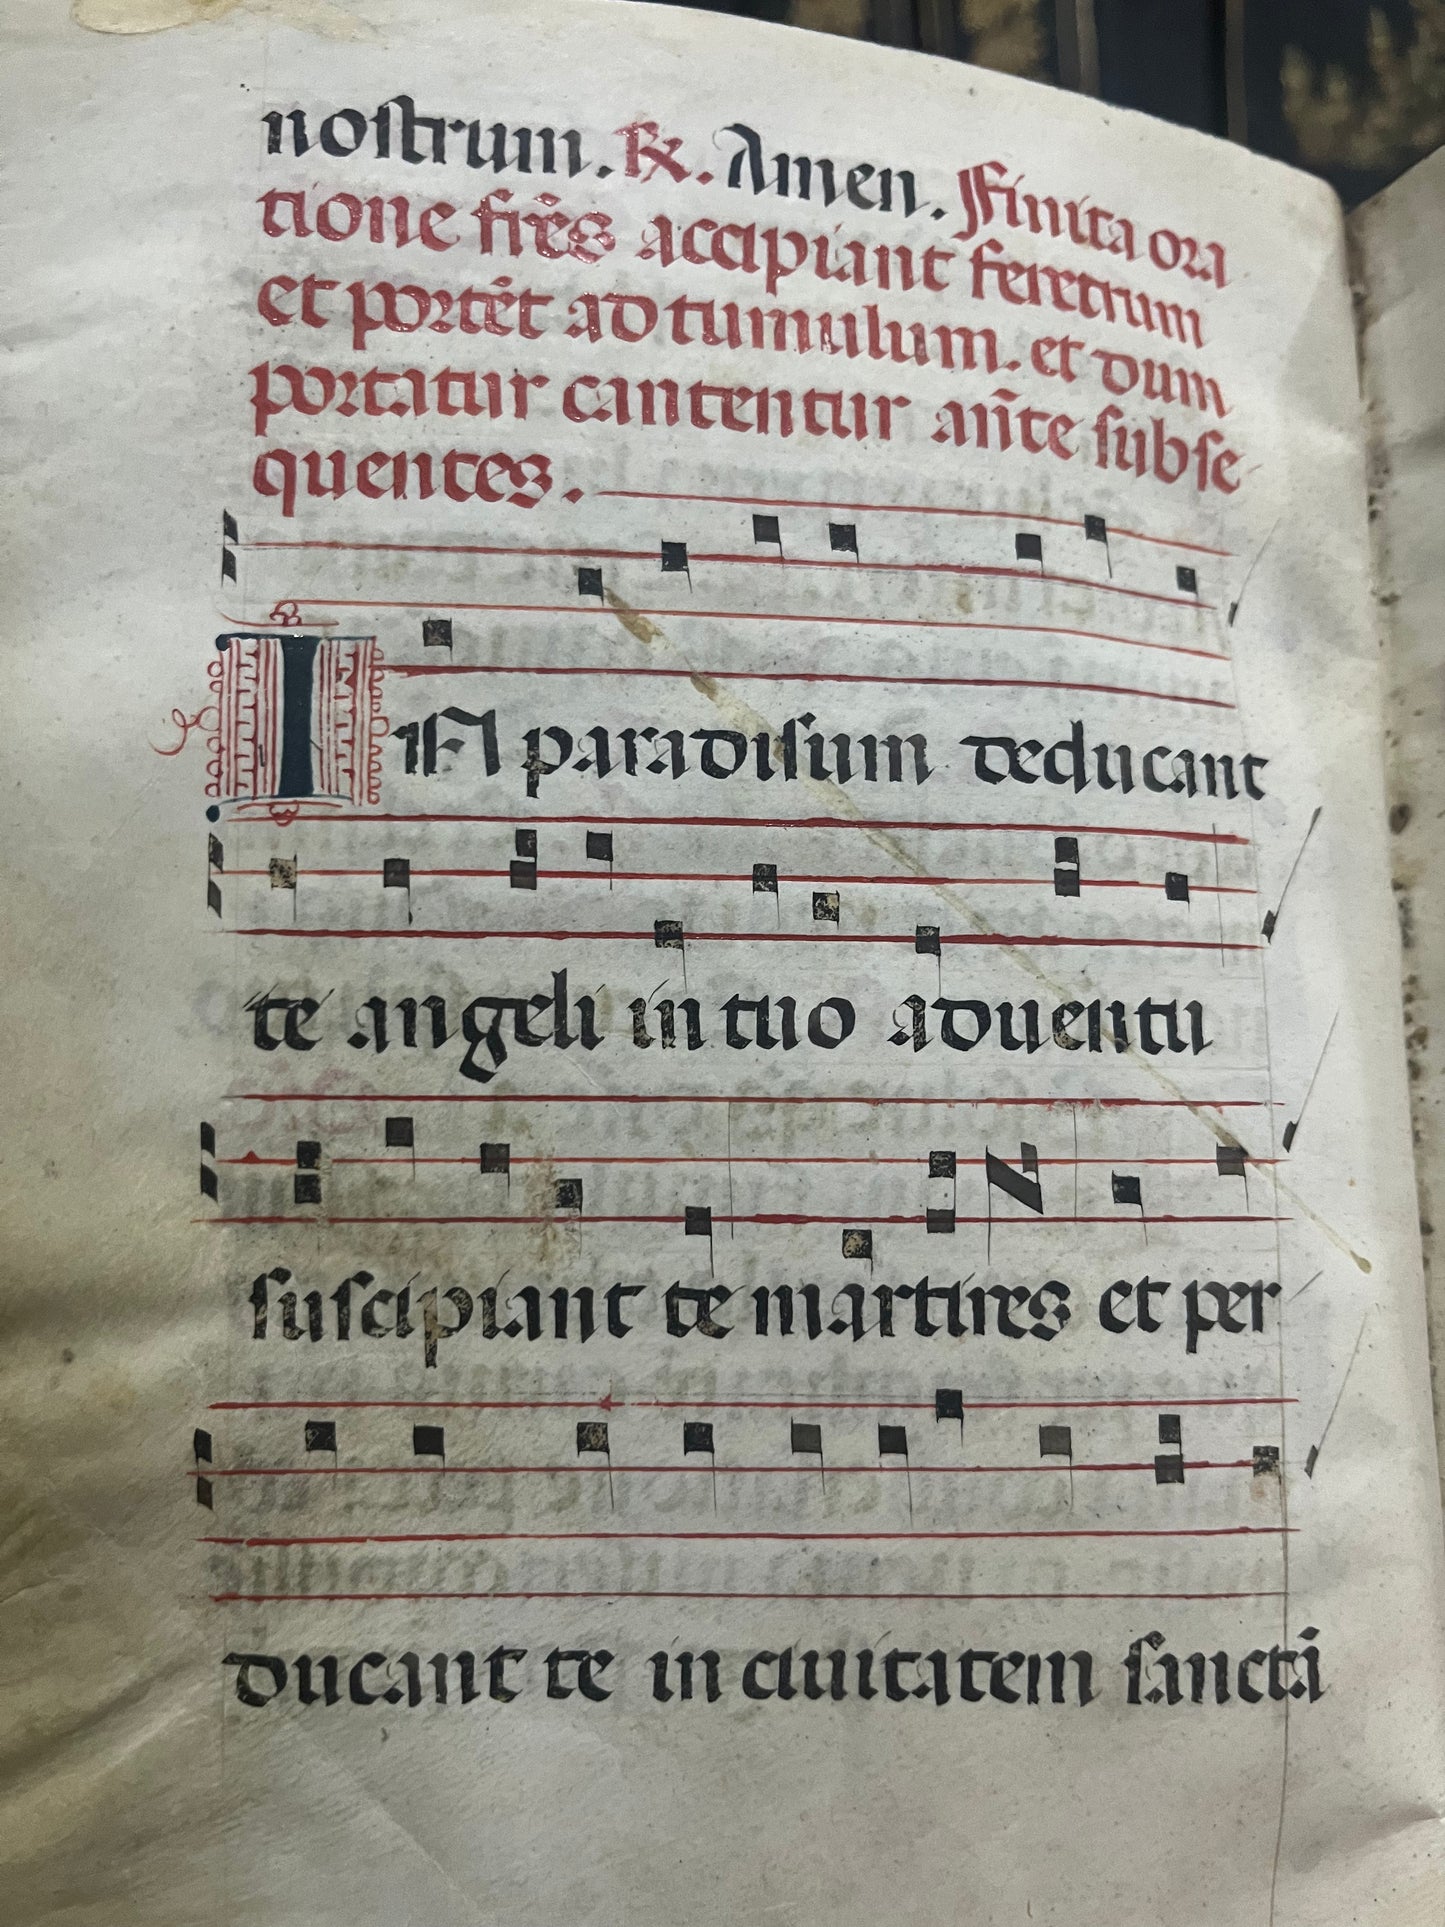 nostrum. ℟. Amen. Finita ora
tione fr̄es accipiant feretrum
et portēt ad tumulum. et dum
portatur cantentur an̄te subse
quentes.
IN paradisum deducant
te angeli in tuo aduentu
suscipiant te martires et per
ducant te in ciuitatem sanctā